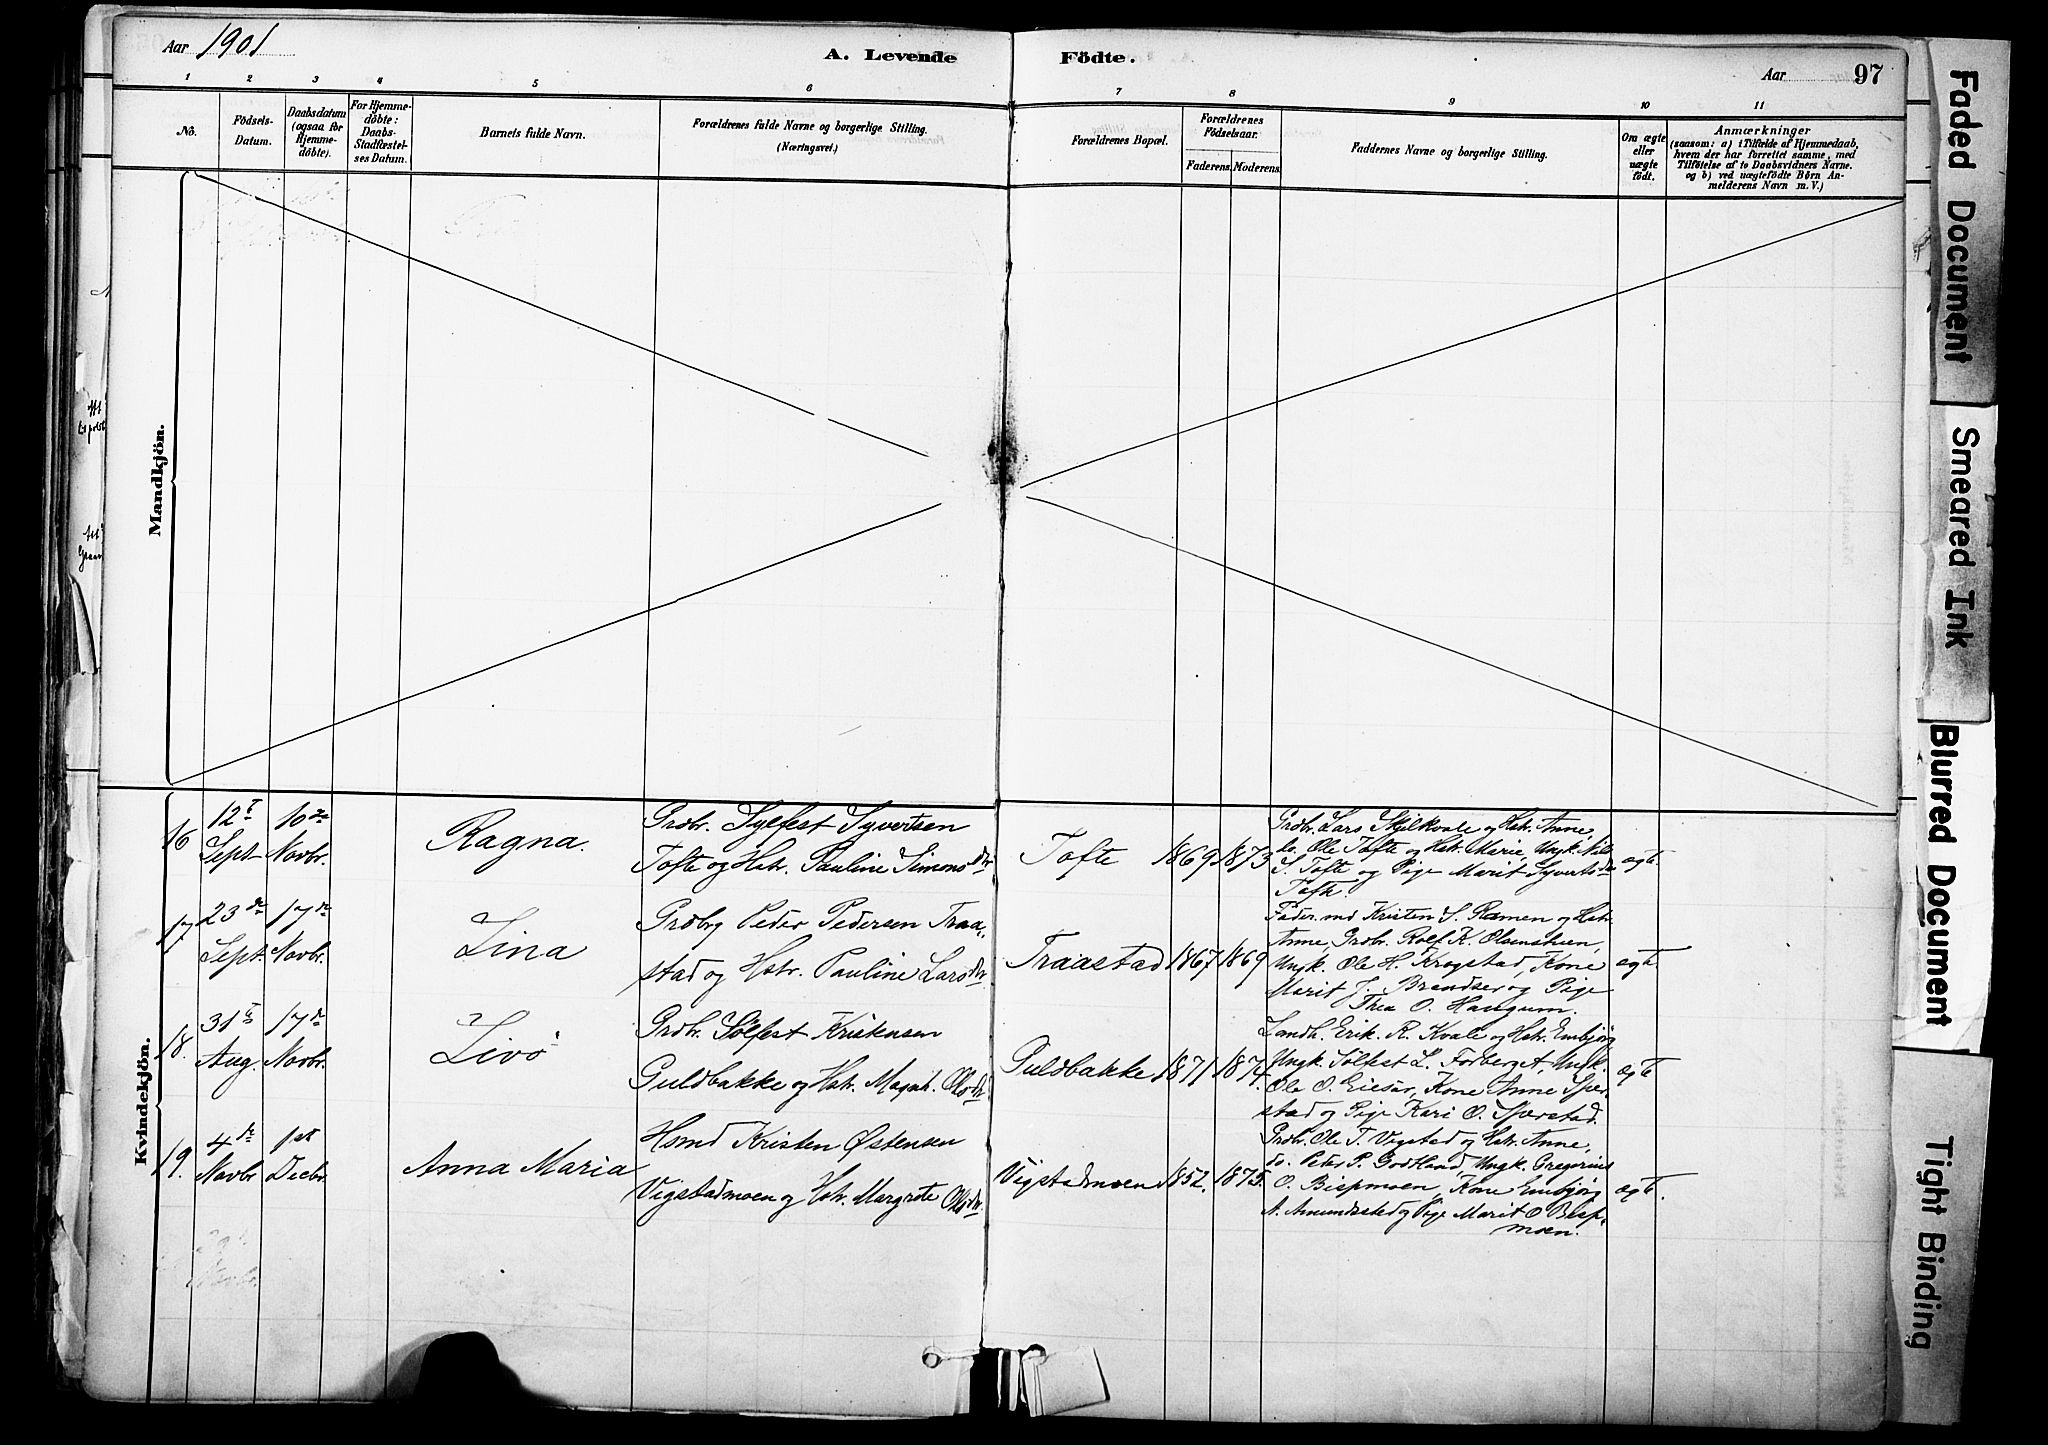 Aar 1901
A. Levende Födte.
Aar 97
1 2 3 4 5 6 7 8 9 10 11
No.
Födsels-Datum.
Daabsdatum (ogsaa for Hjemmedöbte).
For Hjemmedöbte: Daabs-Stadfæstelses Datum.
Barnets fulde Navn.
Forældrenes fulde Navne og borgerlige Stilling.
(Næringsvei.)
Forældrenes Bopæl.
Forældrenes Födselsaar.
Faderens. Moderens.
Faddernes Navne og borgerlige Stilling.
Om ægte eller uægte födt.
Anmærkninger
(saasom: a) i Tilfælde af Hjemmedaab,
hvem der har forrettet samme, med
Tilföielse af to Daabsvidners Navne.
og b) ved uægtefödte Børn An-
melderens Navn m. V.)
Mandkjön.
Kvindekjön.
16 12te Sept. 10de Novbr. Ragna.
Grdbr. Sylfest Syvertsen
Tofte og Hstr. Pauline Simonsdtr
Tofte 1869 1873
Grdbr. Lars Skjelkvale og Hstr. Anne,
do. Ole Tofte og Hstr. Marie, Ungk. Nils
S. Tofte og Pige Marit Syvertsdtr
Tofte.
ægte.
17 23de Sept. 17de Novbr. Lina
Grdbrg Peder Pedersen Traa-
stad og Hstr. Pauline Larsdtr.
Traastad 1867 1869
Fader. md Kristen S. Ramen og Hstr.
Anne, Grdbr. Rolf K. Olsenstuen,
Ungk. Ole H. Krogstad, Kone
Marit J. Brendser og Pige
Thea O. Haugum.
ægte.
18. 31te Aug. 17de Novbr. Livö
Grdbr. Sölfest Kristensen
Guldbakke og Hstr. Magnh. Olsdtr.
Guldbakke 1871 1874.
Landh. Erik R. Kvale og Hstr. Embjörg
Ungk. Sölfest L. Forberget, Ungk.
Ole O. Kone Anne
stad og Pige Kari O.
ægte
19. 4de Novbr 1ste Decbr. Anna Maria
Hsmd Kristen Østensen
Vigstadmoen og Hstr. Margrete Olsdtr.
Vigstadmoen 1852. 1875.
Grdbr. Ole T. Vigstad og Hstr. Anne,
do. Peter P. Godtland, Ungk. Gregorius
O. Bispmoen, Kone Embjörg
A. Amundsstad og Pige Marit O. Bisp-
moen.
ægte.
Faded Document
Smeared Ink
Blurred Document
Tight Binding